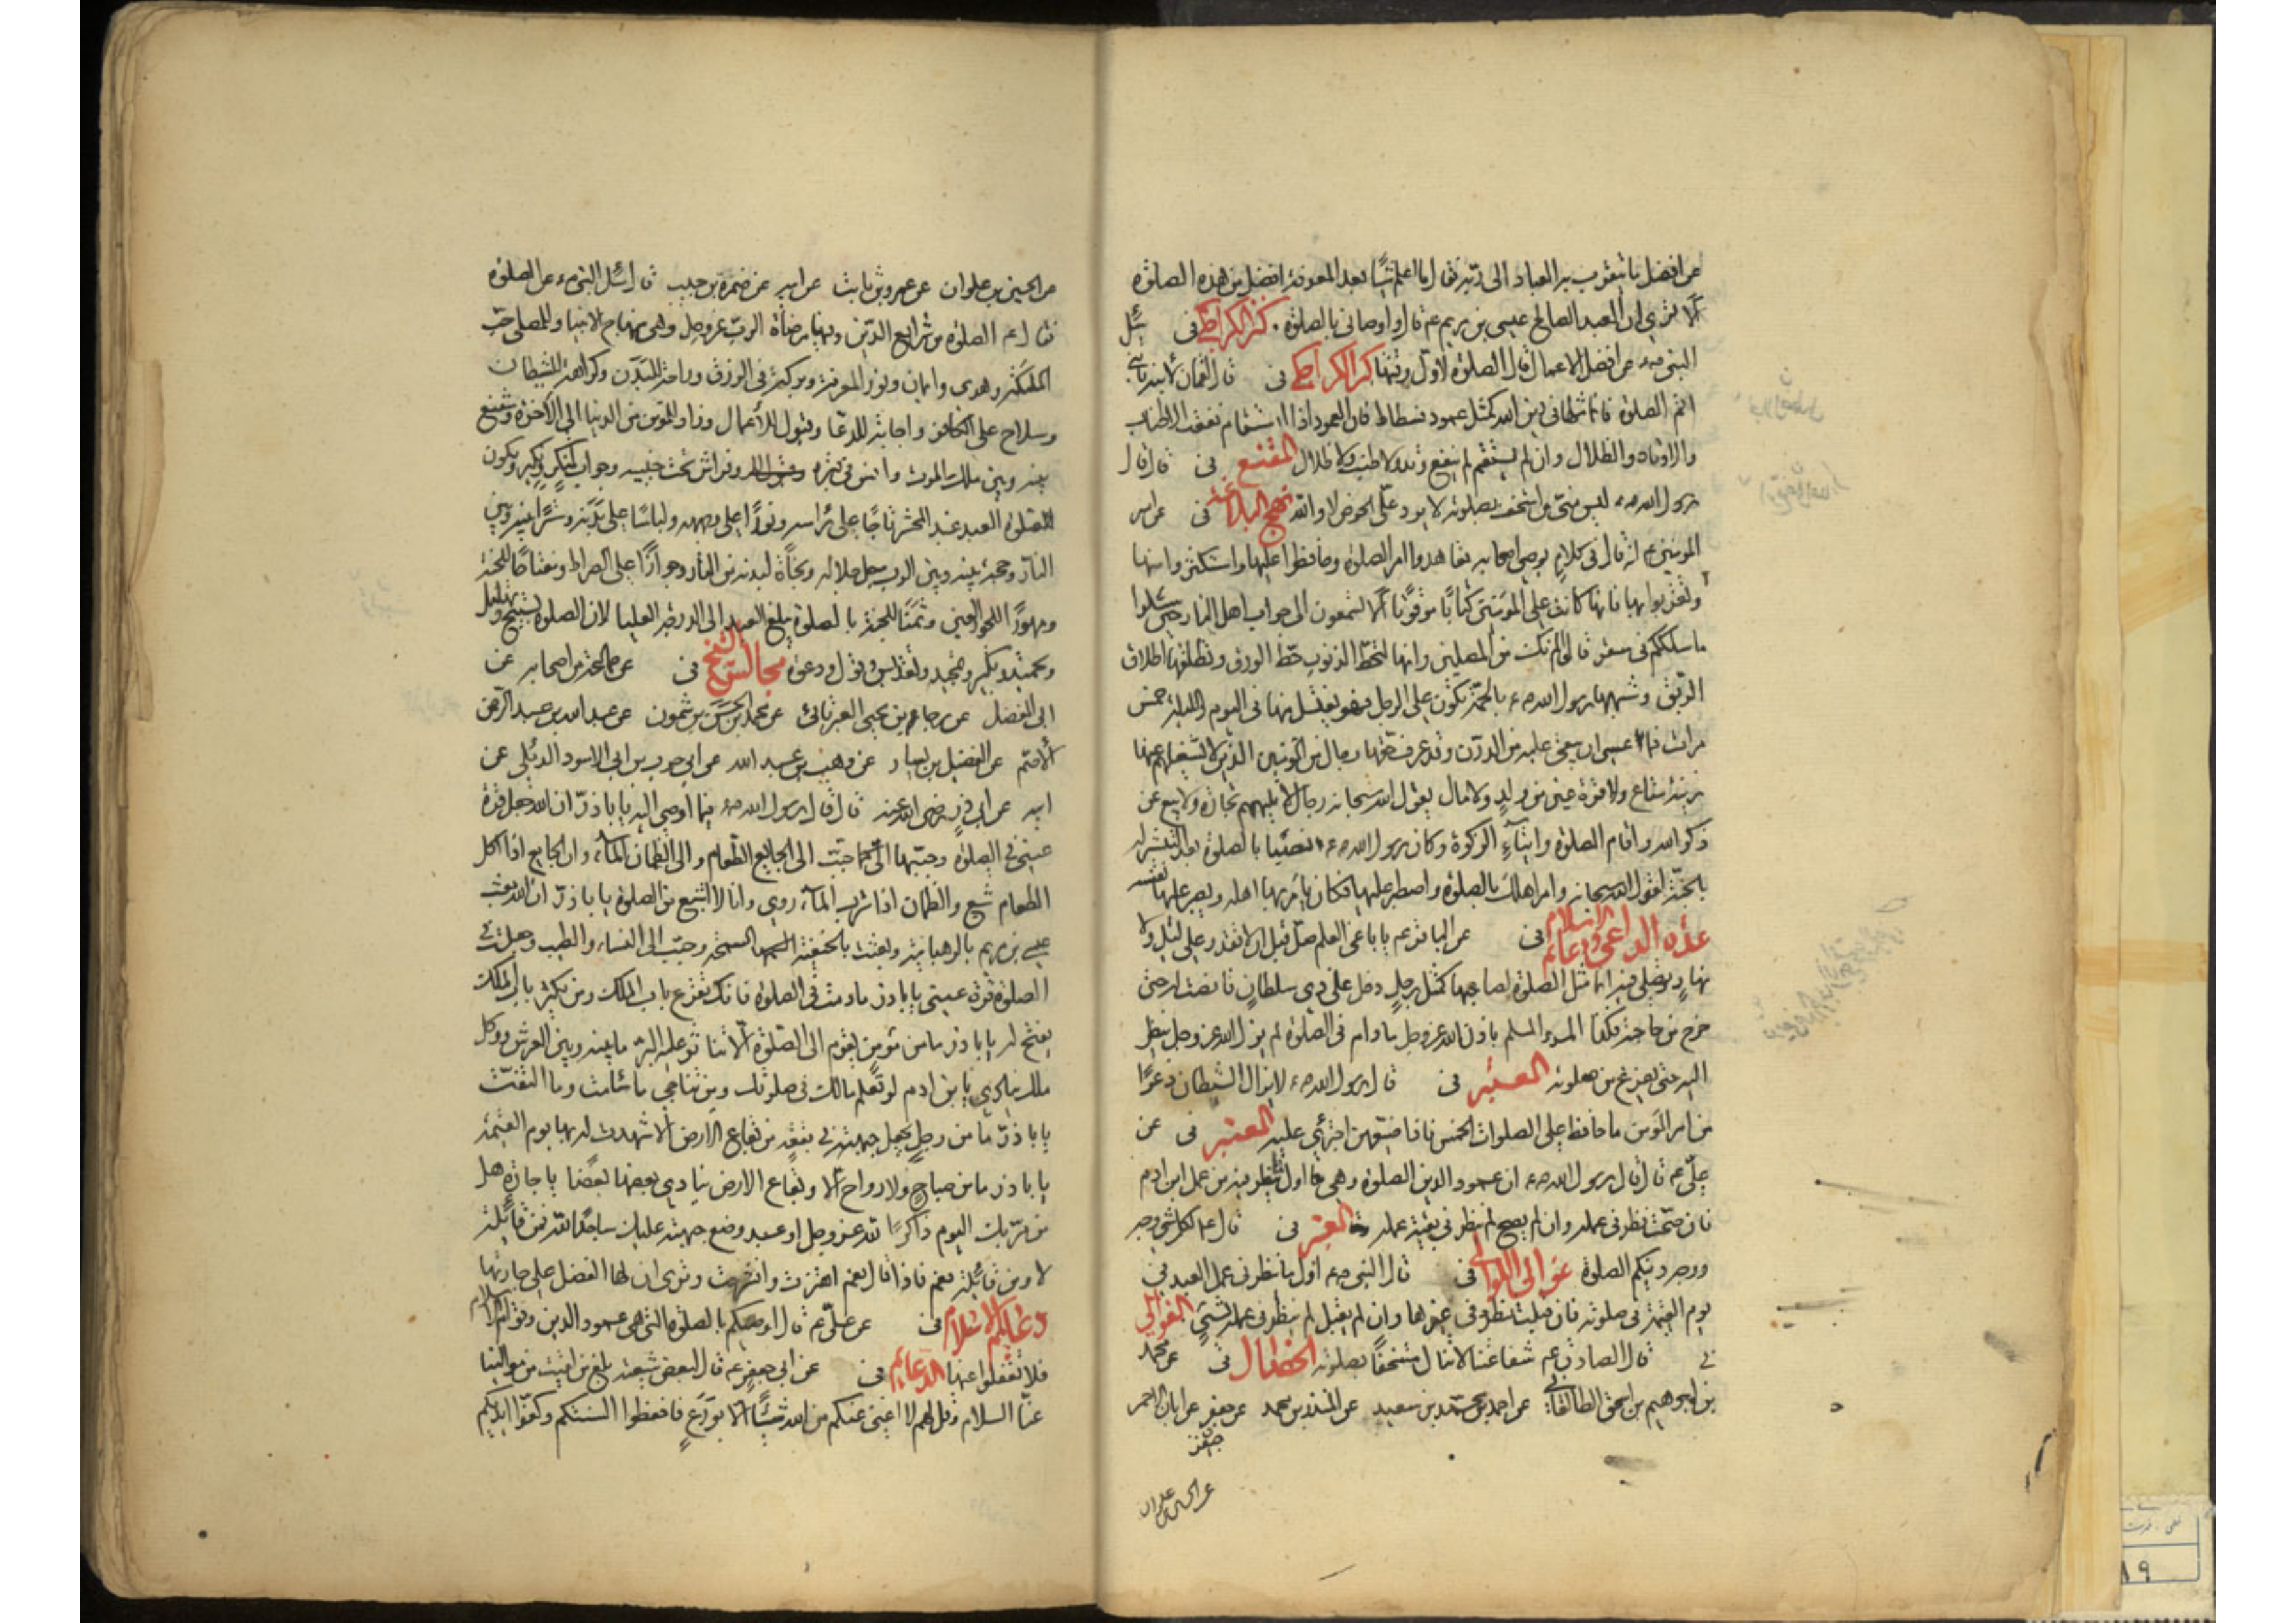 عن افضل ما يتقرب به العباد الى ربهم فقال ما اعلم شيئا بعد المعرفة افضل من هذه الصلوة
ألا ترى ان العبد الصالح عيسى بن مريم ع قال واوصاني بالصلوة. كنز الكراجكى فى سئل
النبى ص عن افضل الاعمال قال الصلوة لاول وقتها كنز الكراجكى فى قال لقمان لابنه يا بنى
اقم الصلوة فانما مثلها فى دين الله كمثل عمود فسطاط فان العمود اذا استقام نفعت الاطناب
والاوتاد والظلال وان لم يستقم لم ينفع وتد ولا طنب ولا ظلال المقنع فى قال قال
رسول الله ص ليس منى من استخف بصلوته لا يرد علىّ الحوض لا والله نهج البلاغة فى عن امير
المومنين ع انه قال فى كلام يوصى اصحابه تعاهدوا امر الصلوة وحافظوا عليها واستكثروا منها
وتقربوا بها فانها كانت على المؤمنين كتابًا موقوتًا ألا تسمعون الى جواب اهل النار حين سئلوا
ما سلككم فى سقر قالوا لم نك من المصلين وانها لتحتّ الذنوب حتّ الورق وتطلقها اطلاق
الربق وشبهها رسول الله ص بالحمّة تكون على باب الرجل فهو يغتسل منها فى اليوم والليلة خمس
مرات فما عسى ان يبقى عليه من الدرن وقد عرف حقها رجال من المؤمنين الذين لا تشغلهم عنها
زينة متاع ولا قرة عين من ولدٍ ولا مال يقول الله سبحانه رجال لا تلهيهم تجارة ولا بيع عن
ذكر الله واقام الصلوة وايتاء الزكوة وكان رسول الله ص نصبًا بالصلوة بعد التبشير له
بالجنة لقول الله سبحانه وامر اهلك بالصلوة واصطبر عليها فكان يأمر بها اهله ويصبر عليها نفسه
عدة الداعى ودعائم الاسلام فى عن الباقر ع يا باغى العلم صل قبل ان لا تقدر على ليل ولا
نهارٍ تصلى فيه انما مثل الصلوة لصاحبها كمثل رجل دخل على ذى سلطان فانصت له حتى
فرغ من حاجته فكذا المرء المسلم باذن الله عز وجل ما دام فى الصلوة لم يزل الله عز وجل ينظر
اليه حتى يفرغ من صلوته العيون فى قال رسول الله ص لا يزال الشيطان ذعرًا
من امر المؤمن ما حافظ على الصلوات الخمس فاذا ضيعهن اجترئ عليه فى عن
علىّ ع قال قال رسول الله ص ان عمود الدين الصلوة وهى اول ما ينظر فيه من عمل ابن ادم
فان صحّت نظر فى عمله وان لم يصح لم ينظر فى بقية عمله فى قال ع لكل شئ وجه
ووجه دينكم الصلوة غوالى اللوالى فى قال النبى ص اول ما ينظر فى عمل العبد فى
يوم القيمة فى صلوته فان قبلت نظر فى غيرها وان لم يقبل لم ينظر فى عمله بشئ الغوالى
فى قال الصادق ع شفاعتنا لا تنال مستخفًا بصلوته الخصال فى عن محمد
بن ابرهيم بن اسحق الطالقانى عن احمد بن محمد بن سعيد عن المنذر بن محمد عن جعفر عن ابان الاحمر
جعفر
عن الحسين بن علوان
عن الحسين بن علوان عن عمرو بن ثابت عن ابيه عن ضمرة بن حبيب قال سئل النبى ص عن الصلوة
فقال ع الصلوة من شرايع الدين وفيها مرضاة الرب عز وجل وهى منهاج الانبيا وللمصلى حب
الملئكة وهدى وايمان ونور المعرفة وبركة فى الرزق وراحة للبدن وكراهة للشيطان
وسلاح على الكافر واجابة للدعا وقبول للأعمال وزاد للمؤمن من الدنيا الى الاخرة وشفيع
بينه وبين ملك الموت وانس فى قبره وفراش تحت جنبيه وجواب لمنكر ونكير وتكون
صلوة العبد عند المحشر تاجًا على رأسه ونورًا على وجهه ولباسًا على بدنه وسترًا بينه وبين
النار وحجة بينه وبين الرب جل جلاله ونجاة لبدنه من النار وجوازًا على الصراط ومفتاحًا للجنة
ومهورًا للحور العين وثمنًا للجنة بالصلوة يبلغ العبد الى الدرجة العليا لان الصلوة تسبيح وتهليل
وتحميد وتكبير وتمجيد وتقديس وقول ودعوة مجالس الشيخ فى عن جماعة من اصحابه عن
ابى المفضل عن رجاء بن يحيى العبرتائى عن محمد بن الحسن بن شمون عن عبد الله بن عبد الرحمن
الأصم عن الفضيل بن يسار عن وهب بن عبد الله عن ابى حرب بن ابى الاسود الدئلى عن
ابيه عن ابى ذر رضى الله عنه قال قال رسول الله ص فيما اوصى اليه يا باذرّ ان الله جعل قرة
عينى فى الصلوة وحبّبها الىّ كما حبّب الى الجايع الطعام والى الظمان الماء وان الجايع اذا اكل
الطعام شبع والظمان اذا شرب الماء روى وانا لا اشبع من الصلوة يا باذرّ ان الله بعث
عيسى بن مريم بالرهبانية وبعثت بالحنيفية السمحة وحبّب الى النساء والطيب وجعلت فى
الصلوة قرة عينى يا باذر ما دمت فى الصلوة فانك تقرع باب الملك ومن يكثر باب الملك
يفتح له يا باذر ما من مؤمن يقوم الى الصلوة الّا تناثر عليه البر ما بينه وبين العرش ووكل
ملك ينادى يا بن ادم لو تعلم مالك فى صلوتك ومن تناجى ما سئمت وما التفتّ
يا باذرّ ما من رجلٍ يجعل جبهته فى بقعةٍ من بقاع الارض الّا شهدت له بها يوم القيمة
يا باذر ما من صباحٍ ولا رواح الا وبقاع الارض ينادى بعضها بعضًا يا جارة هل
من مرّ بك اليوم ذاكرًا لله عز وجل او عبد وضع جبهته عليك ساجدًا لله فمن قائلة
لا ومن قائلة نعم فاذا قال نعم اهتزت وانشرحت وترى ان لها الفضل على جارتها
دعائم الاسلام فى عن علىّ ع قال اوصيكم بالصلوة التى هى عمود الدين وقوام الاسلام
فلا تغفلوا عنها الدعايم فى عن ابى جعفر ع قال لبعض شيعته بلغ من لقيت من موالينا
عنّا السلام وقل لهم لا اغنى عنكم من الله شيئًا الّا بورعٍ فاحفظوا السنتكم وكفوا ايديكم
١٩